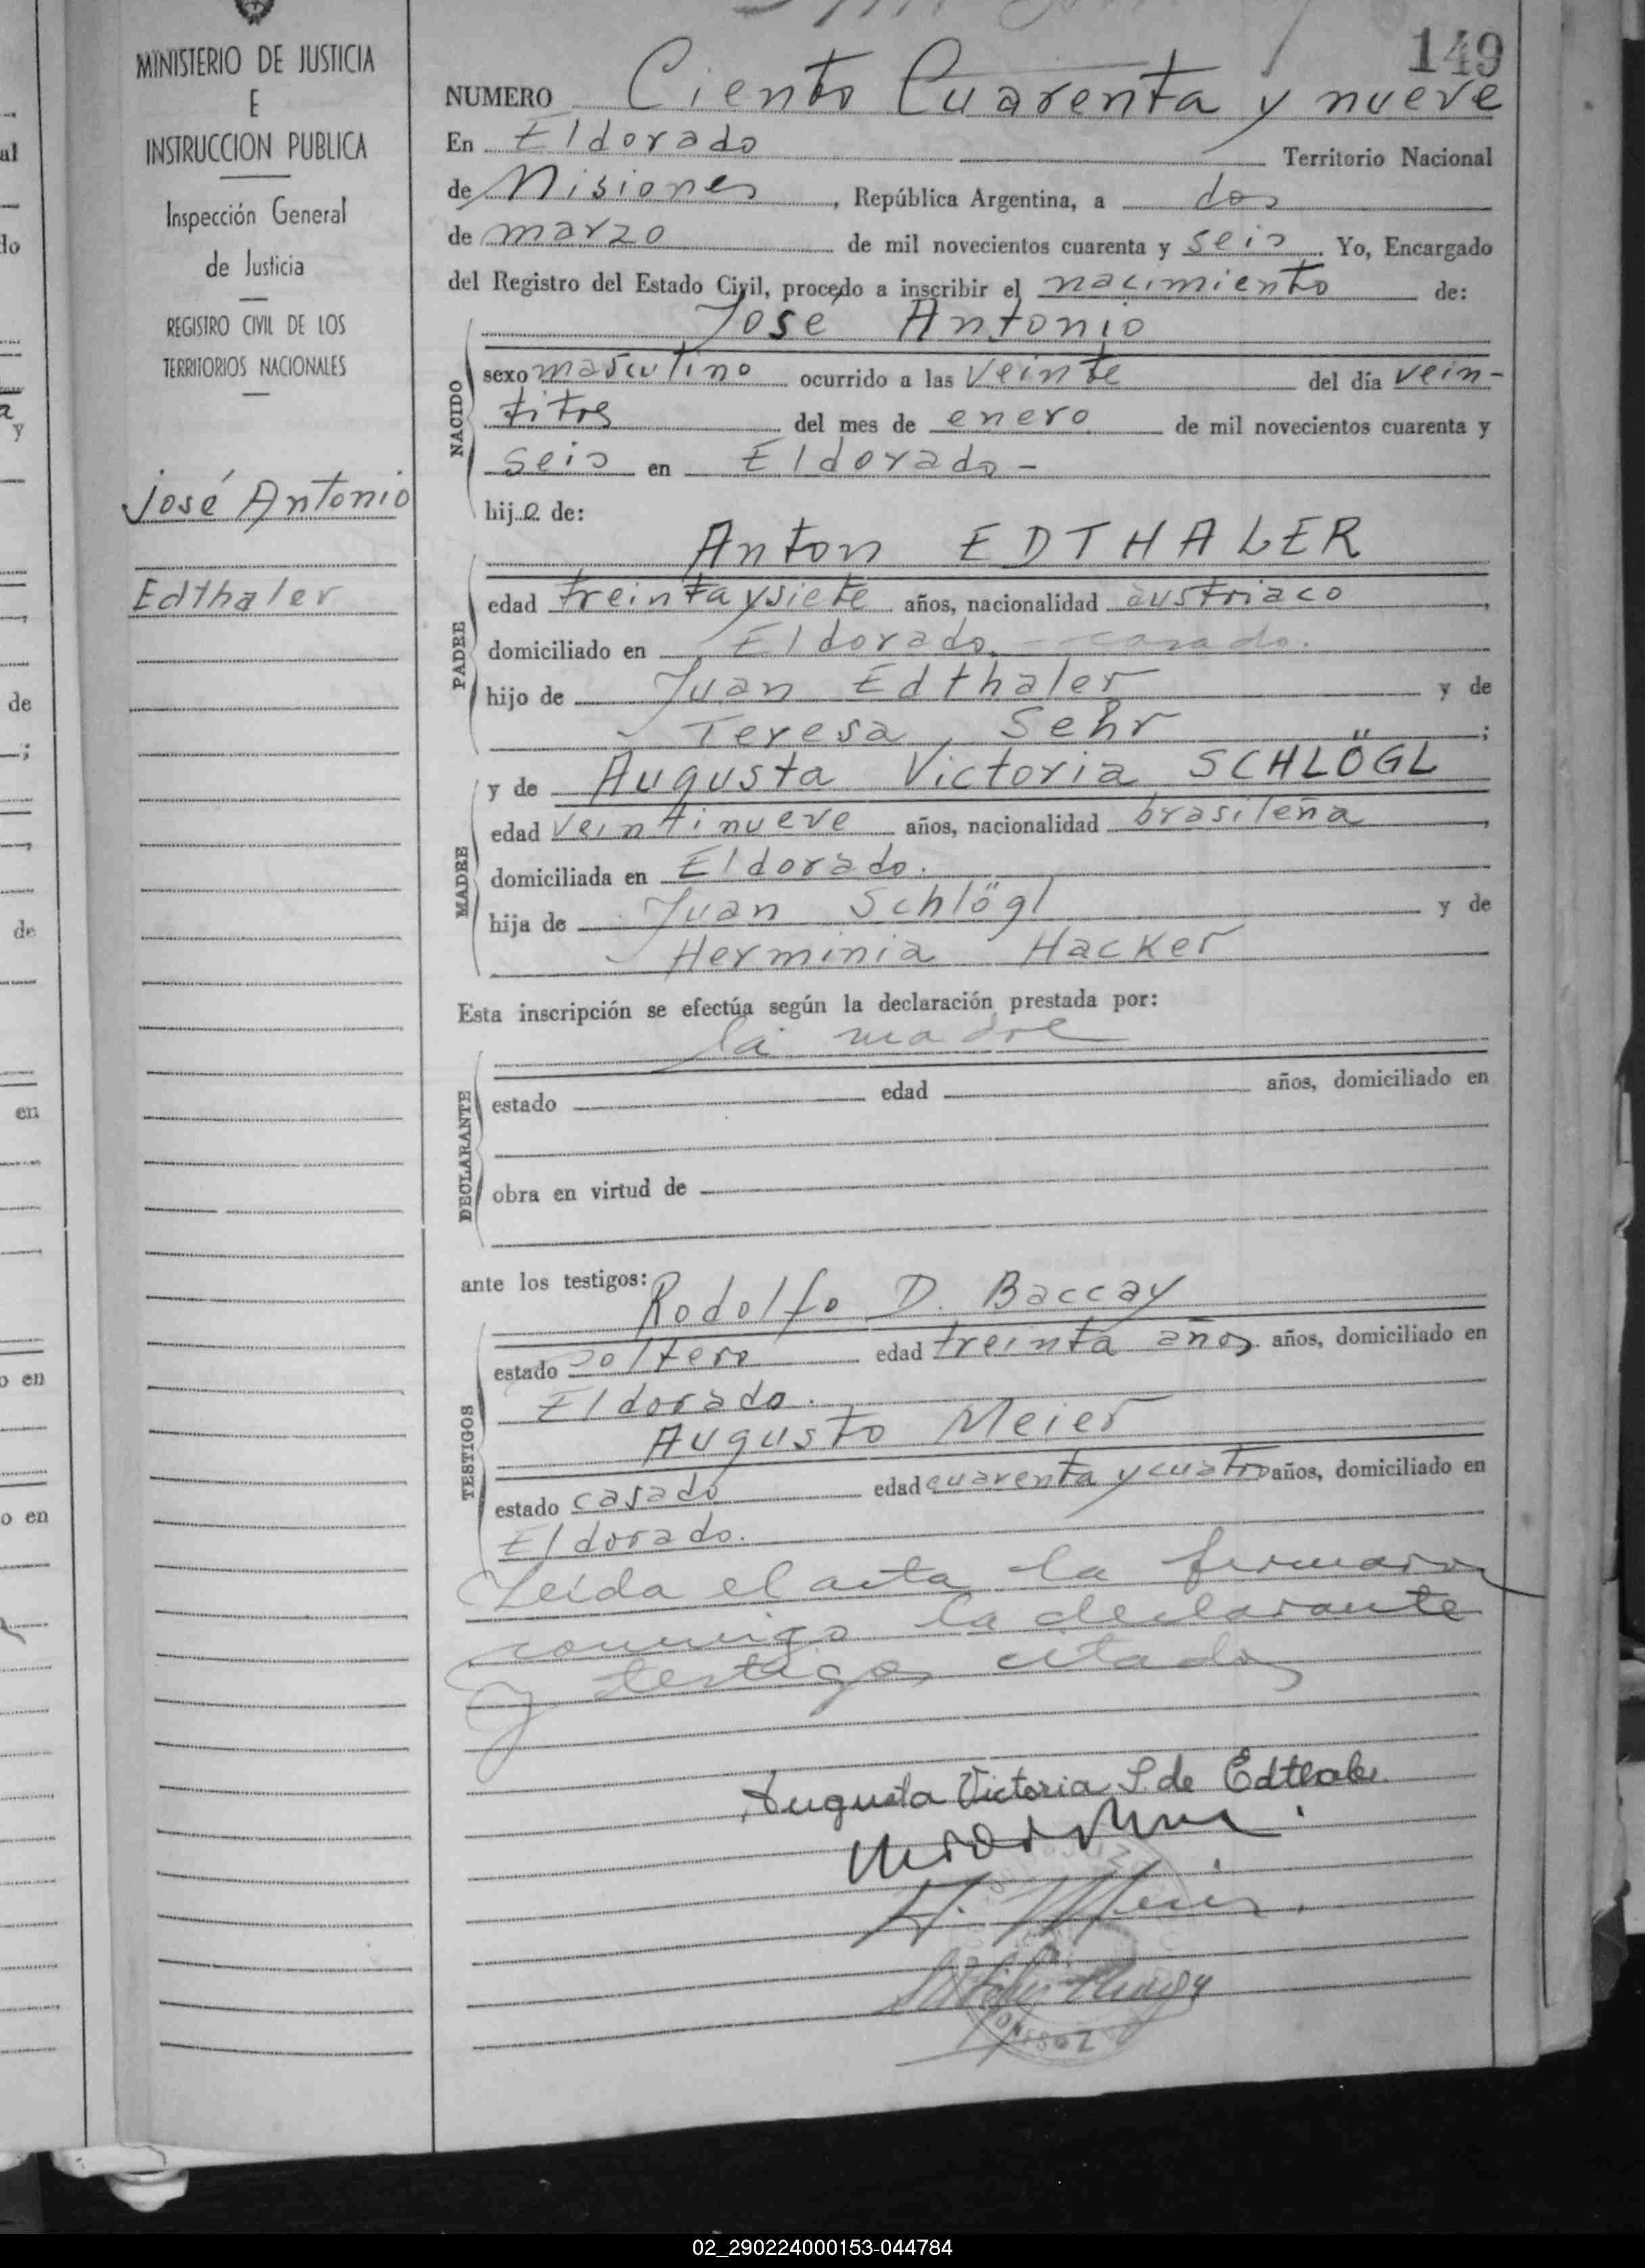 149
MINISTERIO DE JUSTICIA
E
INSTRUCCION PUBLICA
Inspección General
de Justicia
REGISTRO CIVIL DE LOS
TERRITORIOS NACIONALES
José Antonio
Edthaler
NUMERO Ciento Cuarenta y nueve
En Eldorado Territorio Nacional
de Misiones, República Argentina, a dos
de marzo de mil novecientos cuarenta y seis. Yo, Encargado
del Registro del Estado Civil, procedo a inscribir el nacimiento de:
José Antonio
NACIDO
sexo masculino ocurrido a las veinte del día vein-
titrs del mes de enero de mil novecientos cuarenta y
seis en Eldorado -
hijo de:
Anton EDTHALER
PADRE
edad treinta y siete años, nacionalidad austriaco,
domiciliado en Eldorado - casado.
hijo de Juan Edthaler y de
Teresa Sehr;
y de Augusta Victoria SCHLÖGL
MADRE
edad veintinueve años, nacionalidad brasileña,
domiciliada en Eldorado.
hija de Juan Schlögl y de
Herminia Hacker
Esta inscripción se efectúa según la declaración prestada por:
la madre
DECLARANTE
estado edad años, domiciliado en
obra en virtud de
ante los testigos:
Rodolfo D. Baccay
TESTIGOS
estado soltero edad treinta años años, domiciliado en
Eldorado.
Augusto Meier
estado casado edad cuarenta y cuatro años, domiciliado en
Eldorado.
Leída el acta la firmaron
conmigo la declarante
y testigos citados
Augusta Victoria S. de Edthaler
A. Meier.
al
lo
a
y
de
;
de
en
o en
o en
02_290224000153-044784